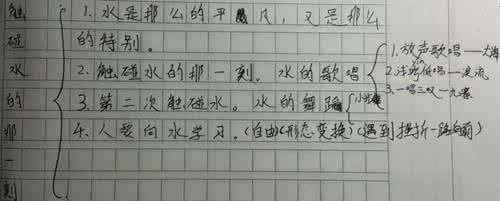 触碰水的那一刻
1. 水是那么的平凡，又是那么
的特别。
2. 触碰水的那一刻。水的歌唱
1. 放声歌唱——大海
2. 低唱——溪流
3. 一唱三叹——九寨
3. 第二次触碰水。水的舞蹈
4. 人要向水学习。(自由)(形态变换)(遇到挫折一路向前)